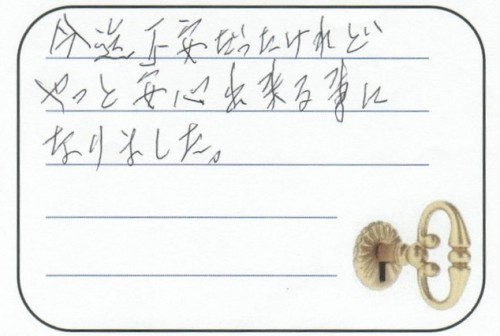 今迄不安だったけれど
やっと安心出来る事に
なりました。